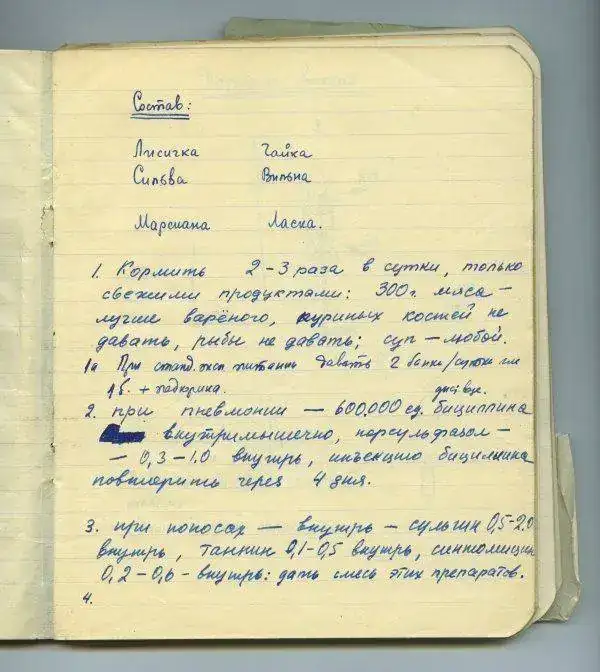 Состав:
Лисичка Чайка
Сильва Вильна
Марсиана Ласка.
1. Кормить 2-3 раза в сутки, только
свежими продуктами: 300г. мяса -
лучше варёного, куриных костей не
давать, рыбы не давать; суп - любой.
1а При станд. эксп. питании давать 2 банки/сутки или
1б. + подкормка.
2. при пневмонии - 600,000 ед. бициллина
внутримышечно, норсульфазол -
- 0,3-1.0 внутрь, инъекцию бициллина
повторить через 4 дня.
3. при поносах - внутрь - сульгин 0,5-2.0
внутрь, таннин 0,1-0,5 внутрь, синтомицин
0,2-0,6 - внутрь: дать смесь этих препаратов.
4.